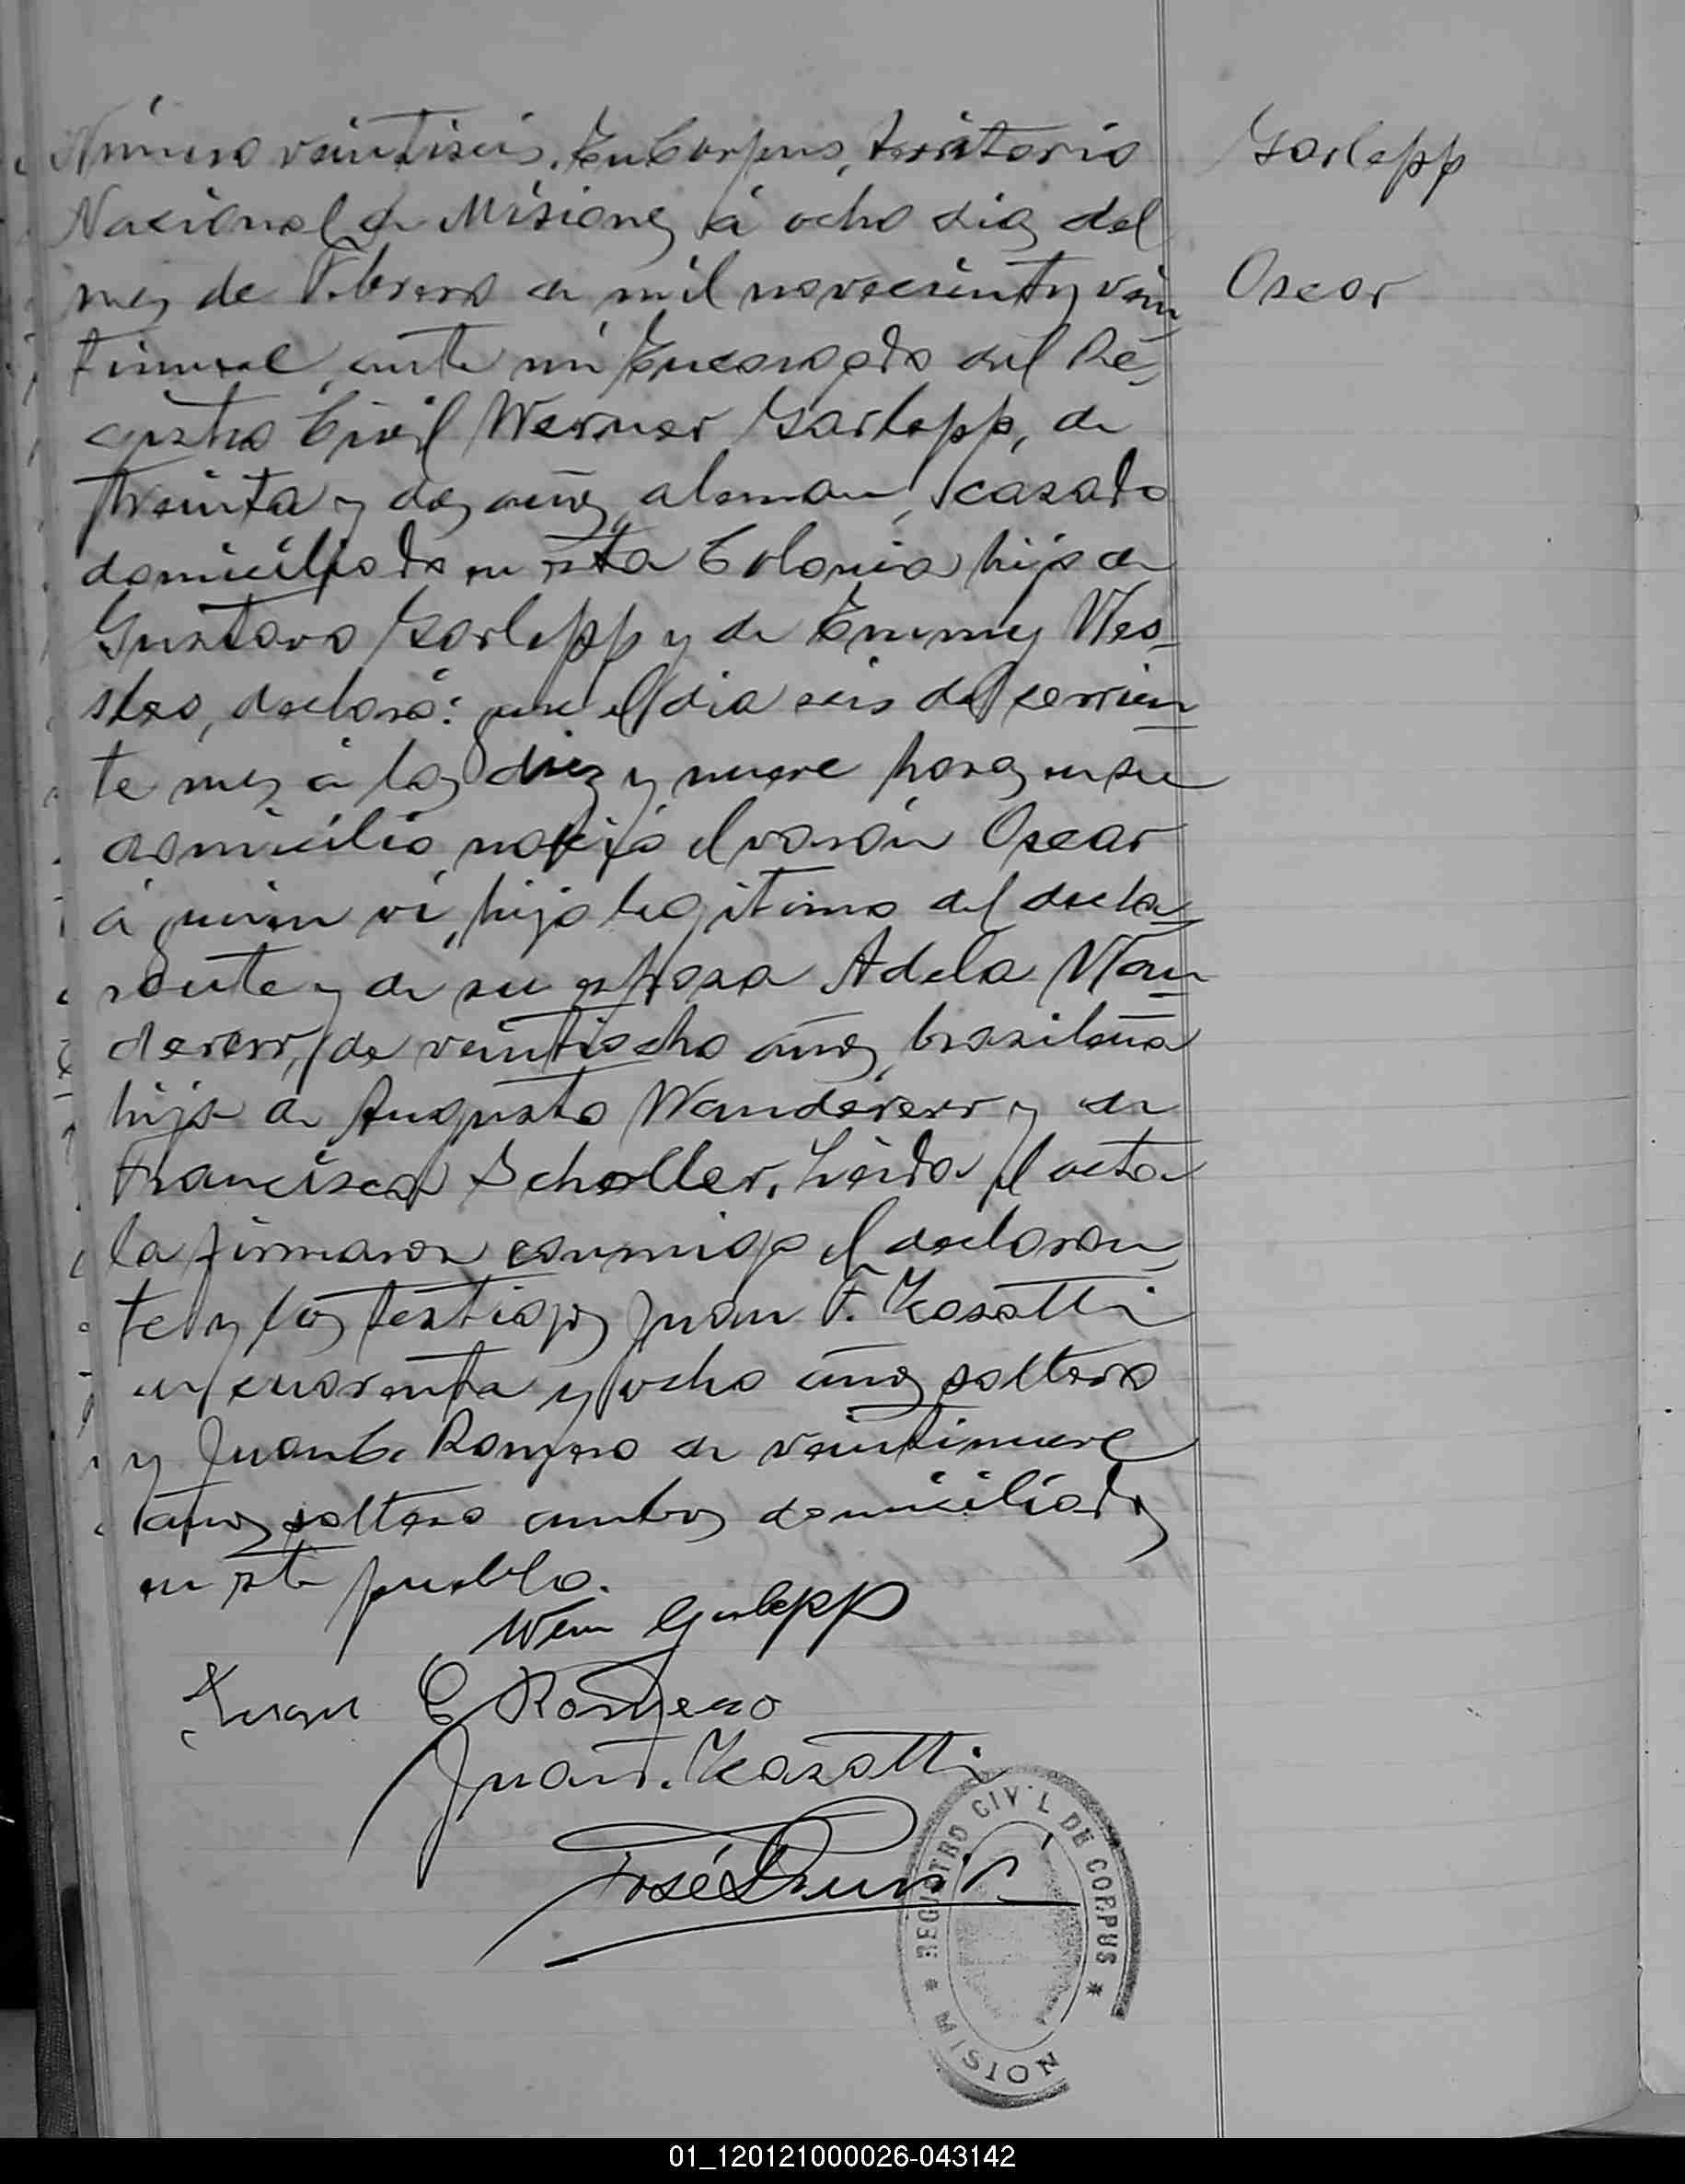 Número veintiseis. En Corpus, territorio
Nacional de Misiones á ocho dias del
mes de Febrero de mil novecientos vein
tinueve, ante mi Encargado del Re-
gistro Civil Werner Garlepp, de
treinta y dos años, aleman, casado
domiciliado en esta Colonia hijo de
Gustavo Garlepp y de Emmy
declaró: que el dia seis del corrien
te mes á las diez y nueve horas en su
domicilio nació el varón Oscar
á quien ví, hijo legitimo del decla
rante y de su esposa Adela Wan
dererr, de veintiocho años, brasileña
hija de Augusto Wandererr y de
Francisca Scholler. Leida el acta
la firmaron conmigo el declaran
te y los testigos Juan F. Kasatti
de cuarenta y ocho años soltero
y Juan C. Romero de veintinueve
años soltero ambos domiciliados
en este pueblo.
Garlepp
Oscar
Wern Garlepp
Juan C Romero
Juan F. Kasatti
José
REGISTRO CIVIL DE CORPUS * MISION *
01_120121000026-043142